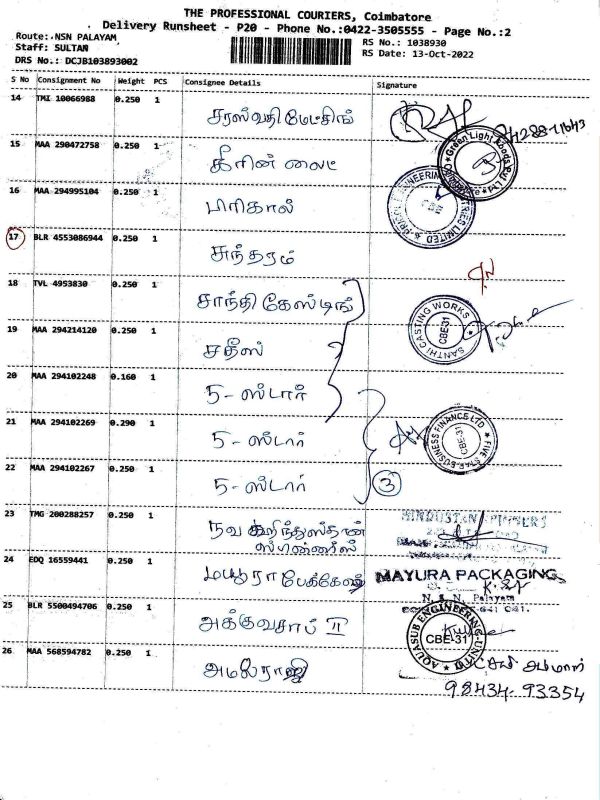 THE PROFESSIONAL COURIERS, Coimbatore
Delivery Runsheet - P20 - Phone No.:0422-3505555 - Page No.:2
Route: NSN PALAYAM
Staff: SULTAN
DRS No.: DCJB103893002
RS No.: 1038930
RS Date: 13-Oct-2022
S No Consignment No Weight PCS Consignee Details Signature
14 TMI 10066988 0.250 1 சரஸ்வதி மேட்சிங்
15 MAA 290472758 0.250 1 கிரின் லைட்
Green Light Foods Pvt Ltd
16 MAA 294995104 0.250 1 பிரிகால்
CBE
17 BLR 4553086944 0.250 1 சுந்தரம்
18 TVL 4953830 0.250 1 சாந்தி கேஸ்டிங்
SANTHI CASTING WORKS
CBE-31
19 MAA 294214120 0.250 1 சதீஸ்
20 MAA 294102248 0.160 1 5-ஸ்டார்
21 MAA 294102269 0.290 1 5-ஸ்டார்
FIVE STAR BUSINESS FINANCE LTD
CBE-31
22 MAA 294102267 0.250 1 5-ஸ்டார் 3
23 TMG 200288257 0.250 1 நவ ஹிந்துஸ்தான்
ஸ்பின்னர்ஸ்
24 EDQ 16559441 0.250 1 மயூரா பேக்கேஜ்
MAYURA PACKAGING
N.S.N. Palayam
25 BLR 5500494706 0.250 1 அக்குவசாப் II
AQUASUB ENGINEERING-UNIT-II
CBE-31
26 MAA 568594782 0.250 1 அமல்ராஜ்
98434-93354